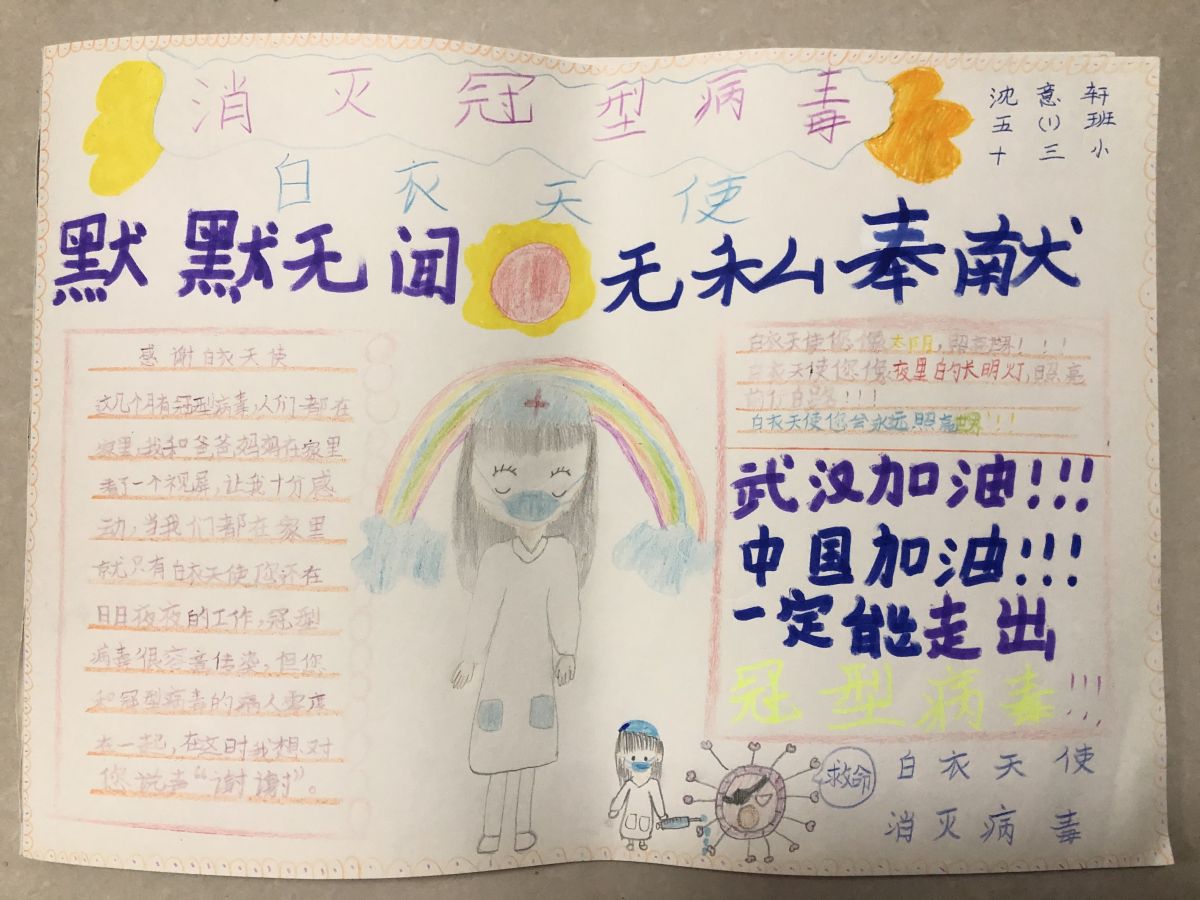 消灭冠型病毒
沈意轩
五(1)班
十三小
白衣天使
默默无闻 无私奉献
感谢白衣天使
这几个月有冠型病毒,人们都在
家里,我和爸爸妈妈在家里
看了一个视屏,让我十分感
动,当我们都在家里
就只有白衣天使您还在
日日夜夜的工作,冠型
病毒很容易传染,但你
和冠型病毒的病人零度
在一起,在这时我想对
您说声“谢谢”。
白衣天使您像太阳,照亮世界!!!
白衣天使您像夜里的长明灯,照亮
前行的路!!!
白衣天使您会永远照亮世界!!!
武汉加油!!!
中国加油!!!
一定能走出
冠型病毒!!!
救命
白衣天使
消灭病毒